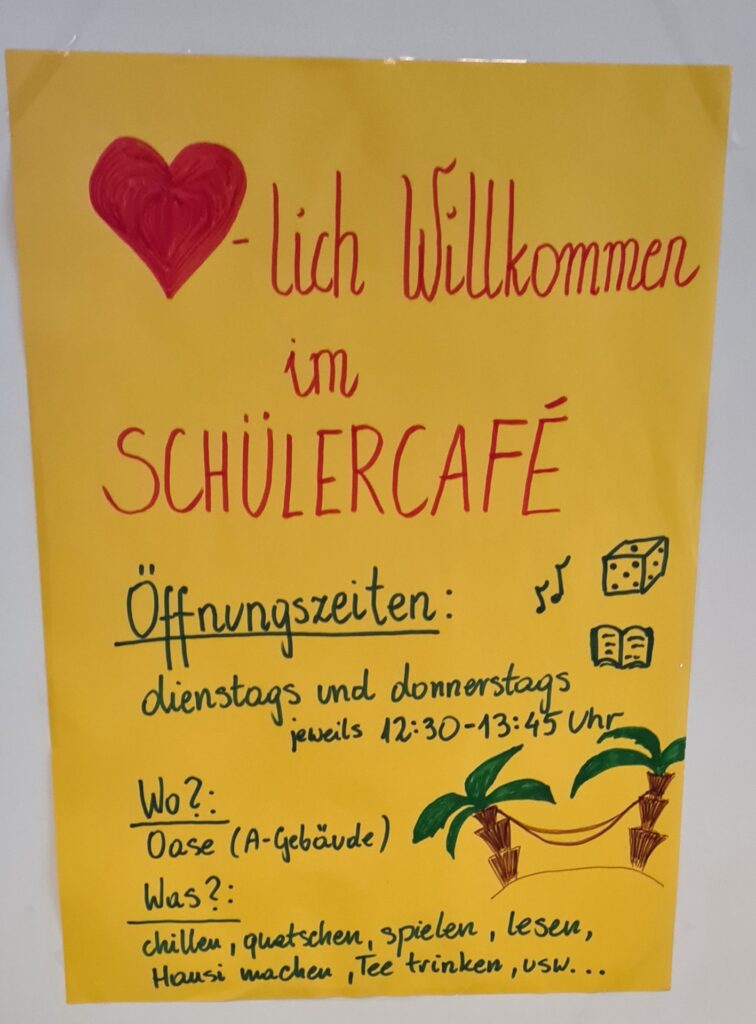 -lich Willkommen
im
SCHÜLERCAFÉ
Öffnungszeiten:
dienstags und donnerstags
jeweils 12:30-13:45 Uhr
Wo?:
Oase (A-Gebäude)
Was?:
chillen, quatschen, spielen, lesen,
Hausi machen, Tee trinken, usw...